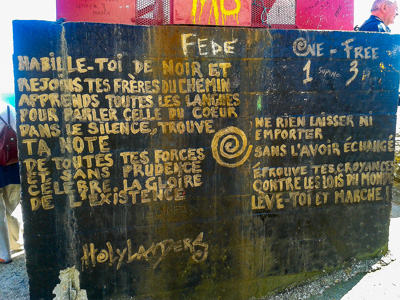 FEDE
ONE - FREE
1 3
HABILLE-TOI DE NOIR ET
REJOINS TES FRÈRES DU CHEMIN
APPRENDS TOUTES LES LANGUES
POUR PARLER CELLE DU COEUR
DANS LE SILENCE, TROUVE
TA NOTE
DE TOUTES TES FORCES
ET SANS PRUDENCE
CÉLÈBRE LA GLOIRE
DE L'EXISTENCE
NE RIEN LAISSER NI
EMPORTER
SANS L'AVOIR ÉCHANGÉ
ÉPROUVE TES CROYANCES
CONTRE LES LOIS DU MONDE
LÈVE-TOI ET MARCHE !